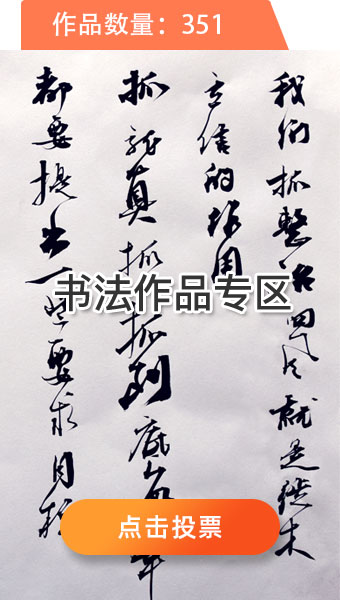 作品数量：351
我们抓整治四风就是徙木
立信的作用
抓就真抓抓到底每年
都要提出一些要求目标
书法作品专区
点击投票